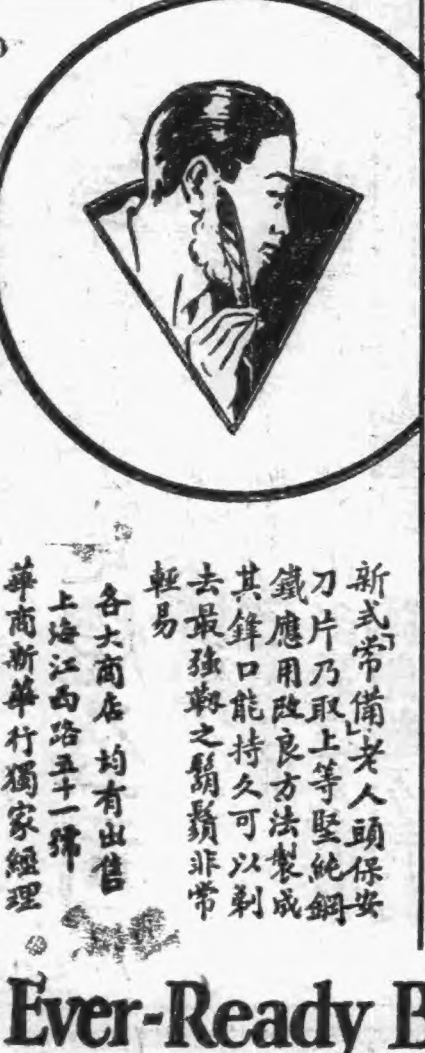 新式「常備」老人頭保安
刀片乃取上等堅純鋼
鐵應用改良方法製成
其鋒口能持久可以剃
去最強韌之鬍鬚非常
輕易
各大商店均有出售
上海江西路五十一號
華商新華行獨家經理
Ever-Ready B